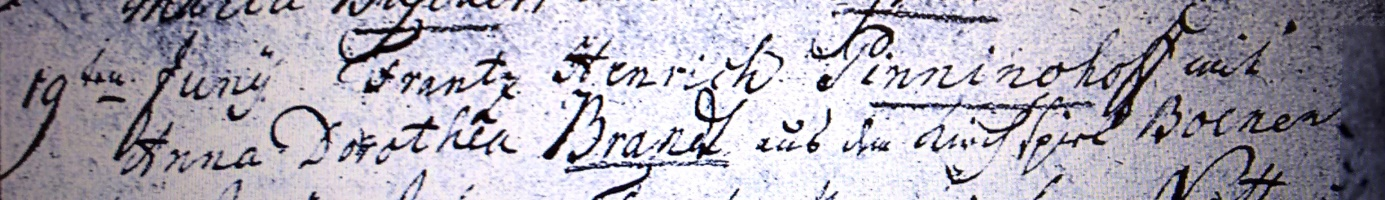 Maria
19ten Junÿ Frantz Henrich Pinninghoff mit
Anna Dorothea Brandt aus dem Kirchspiel Boenen